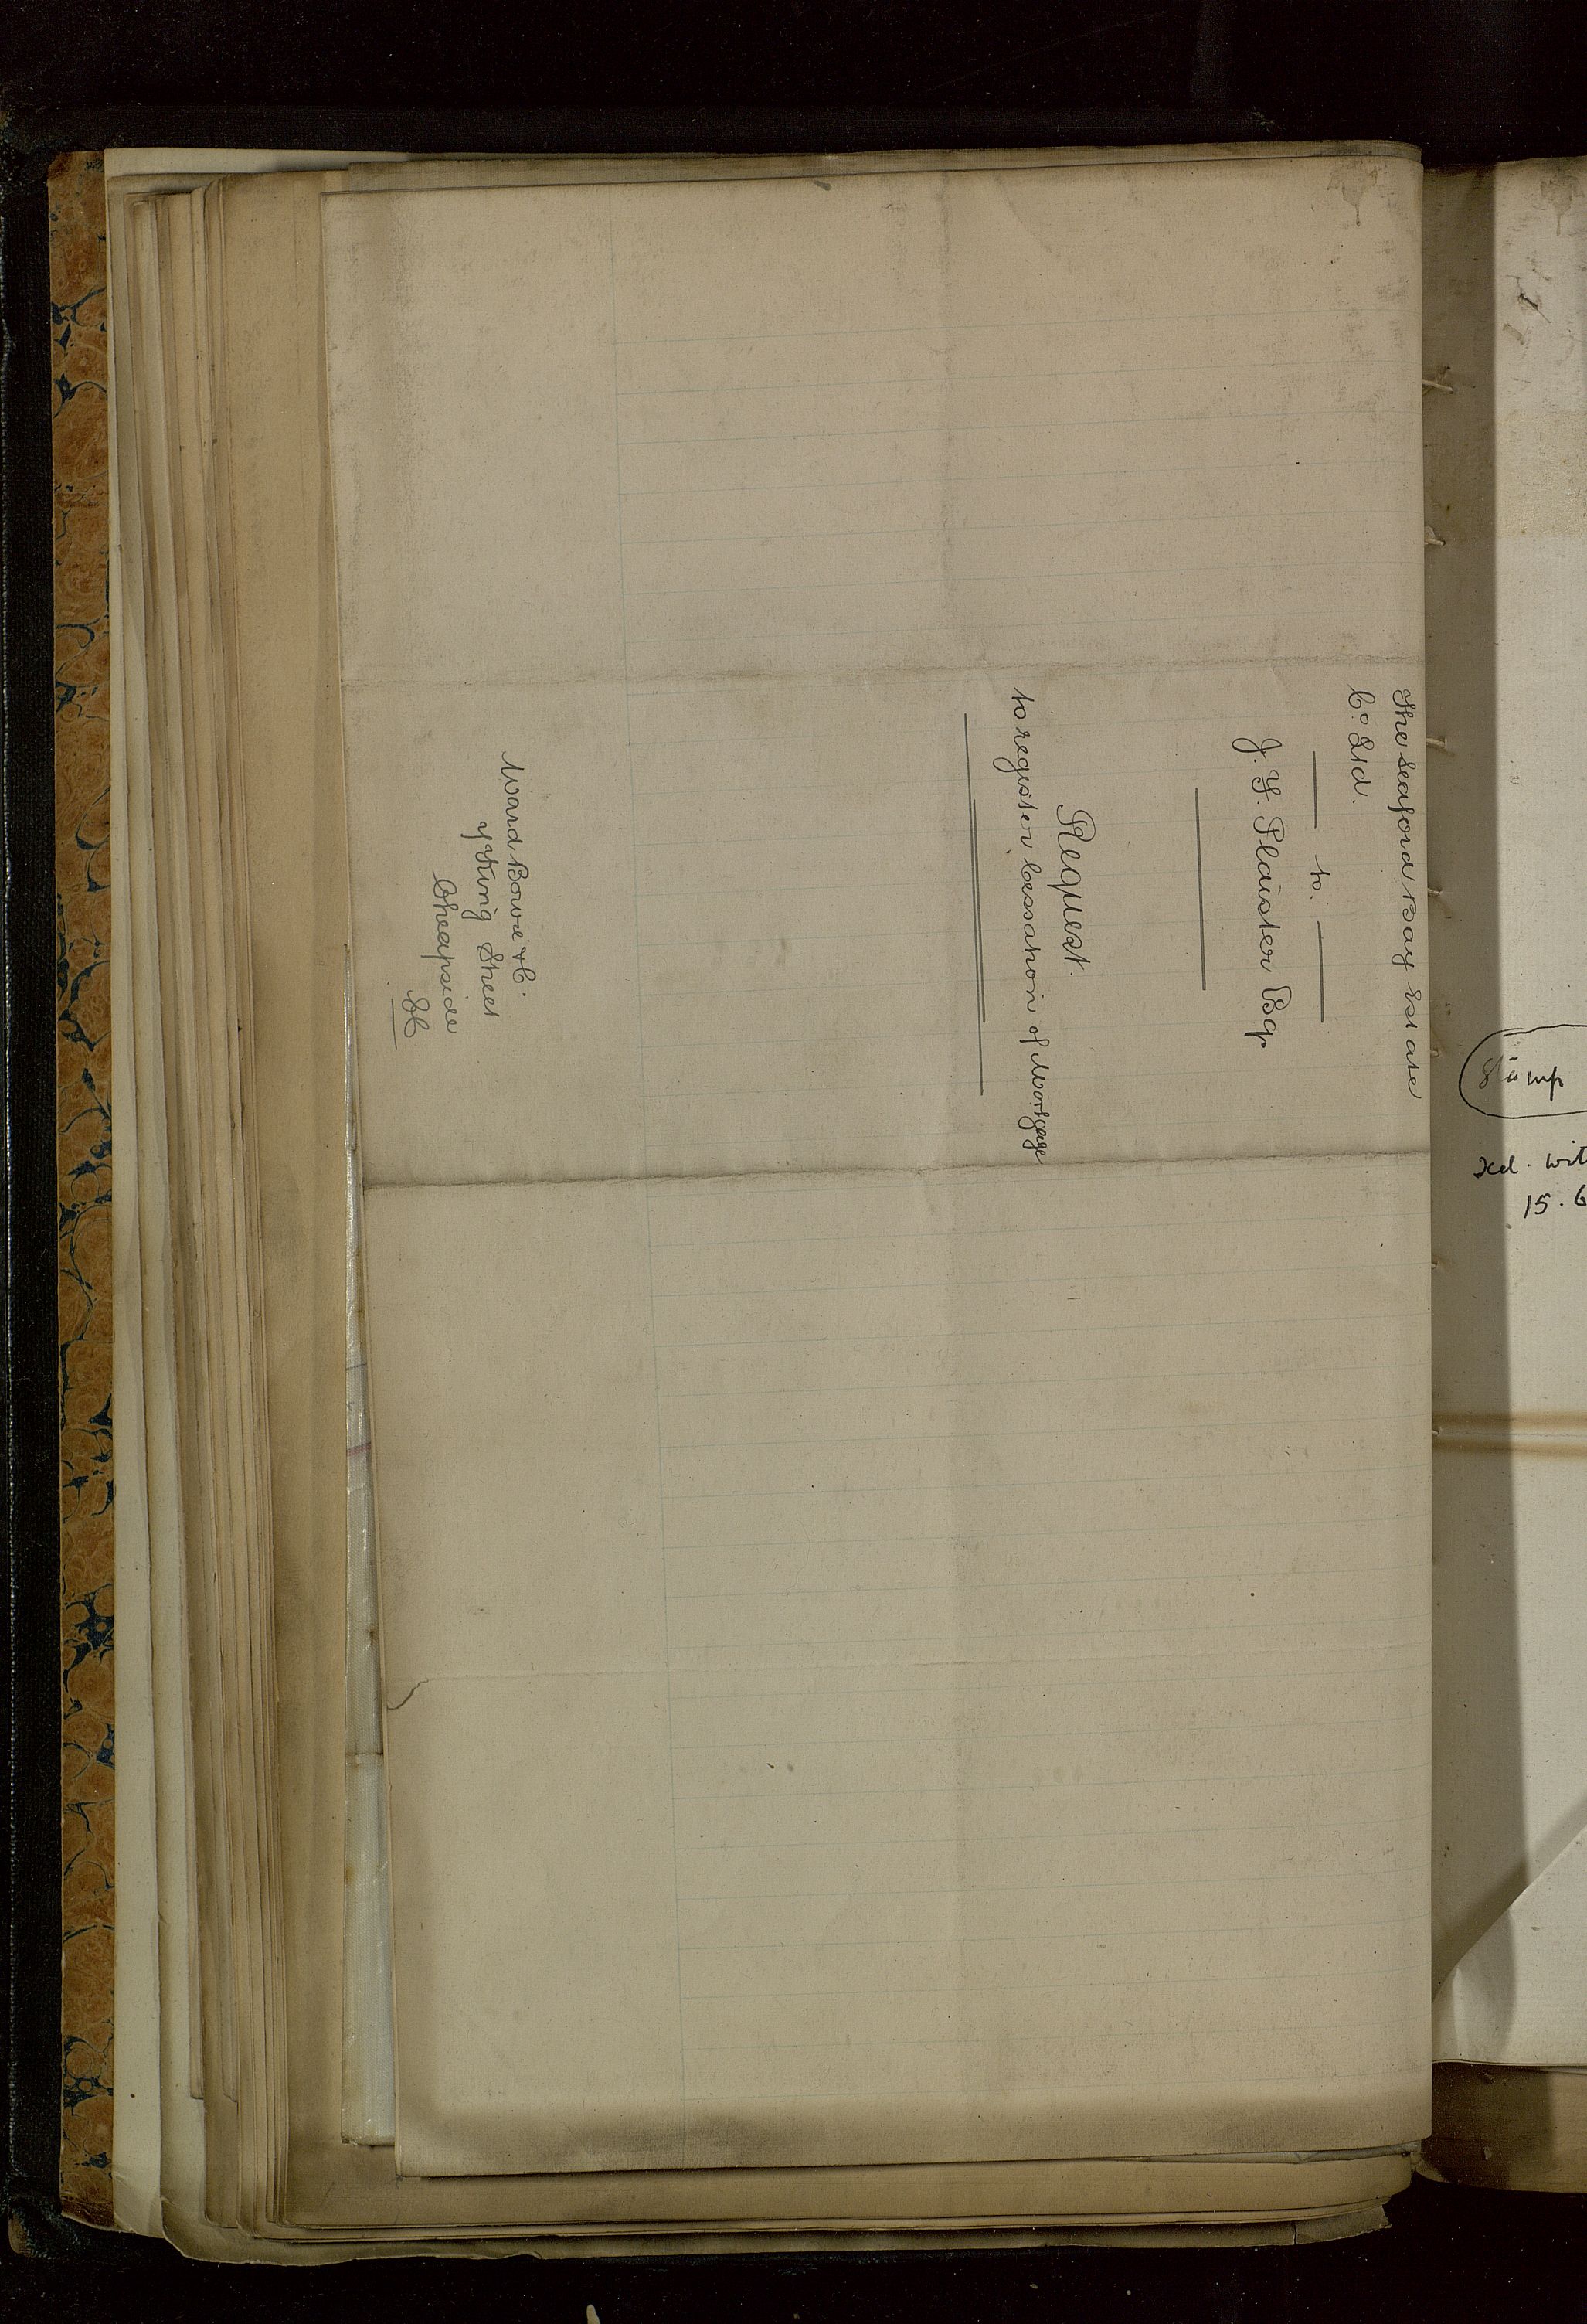 The Seaford Bay Estate
Co Ltd.
to
J. Y. Plaister Esqr
Request.
to register Cessation of Mortgage
Ward Bowie & Co.
7 King Street
Cheapside
EC
Stamp
15.6